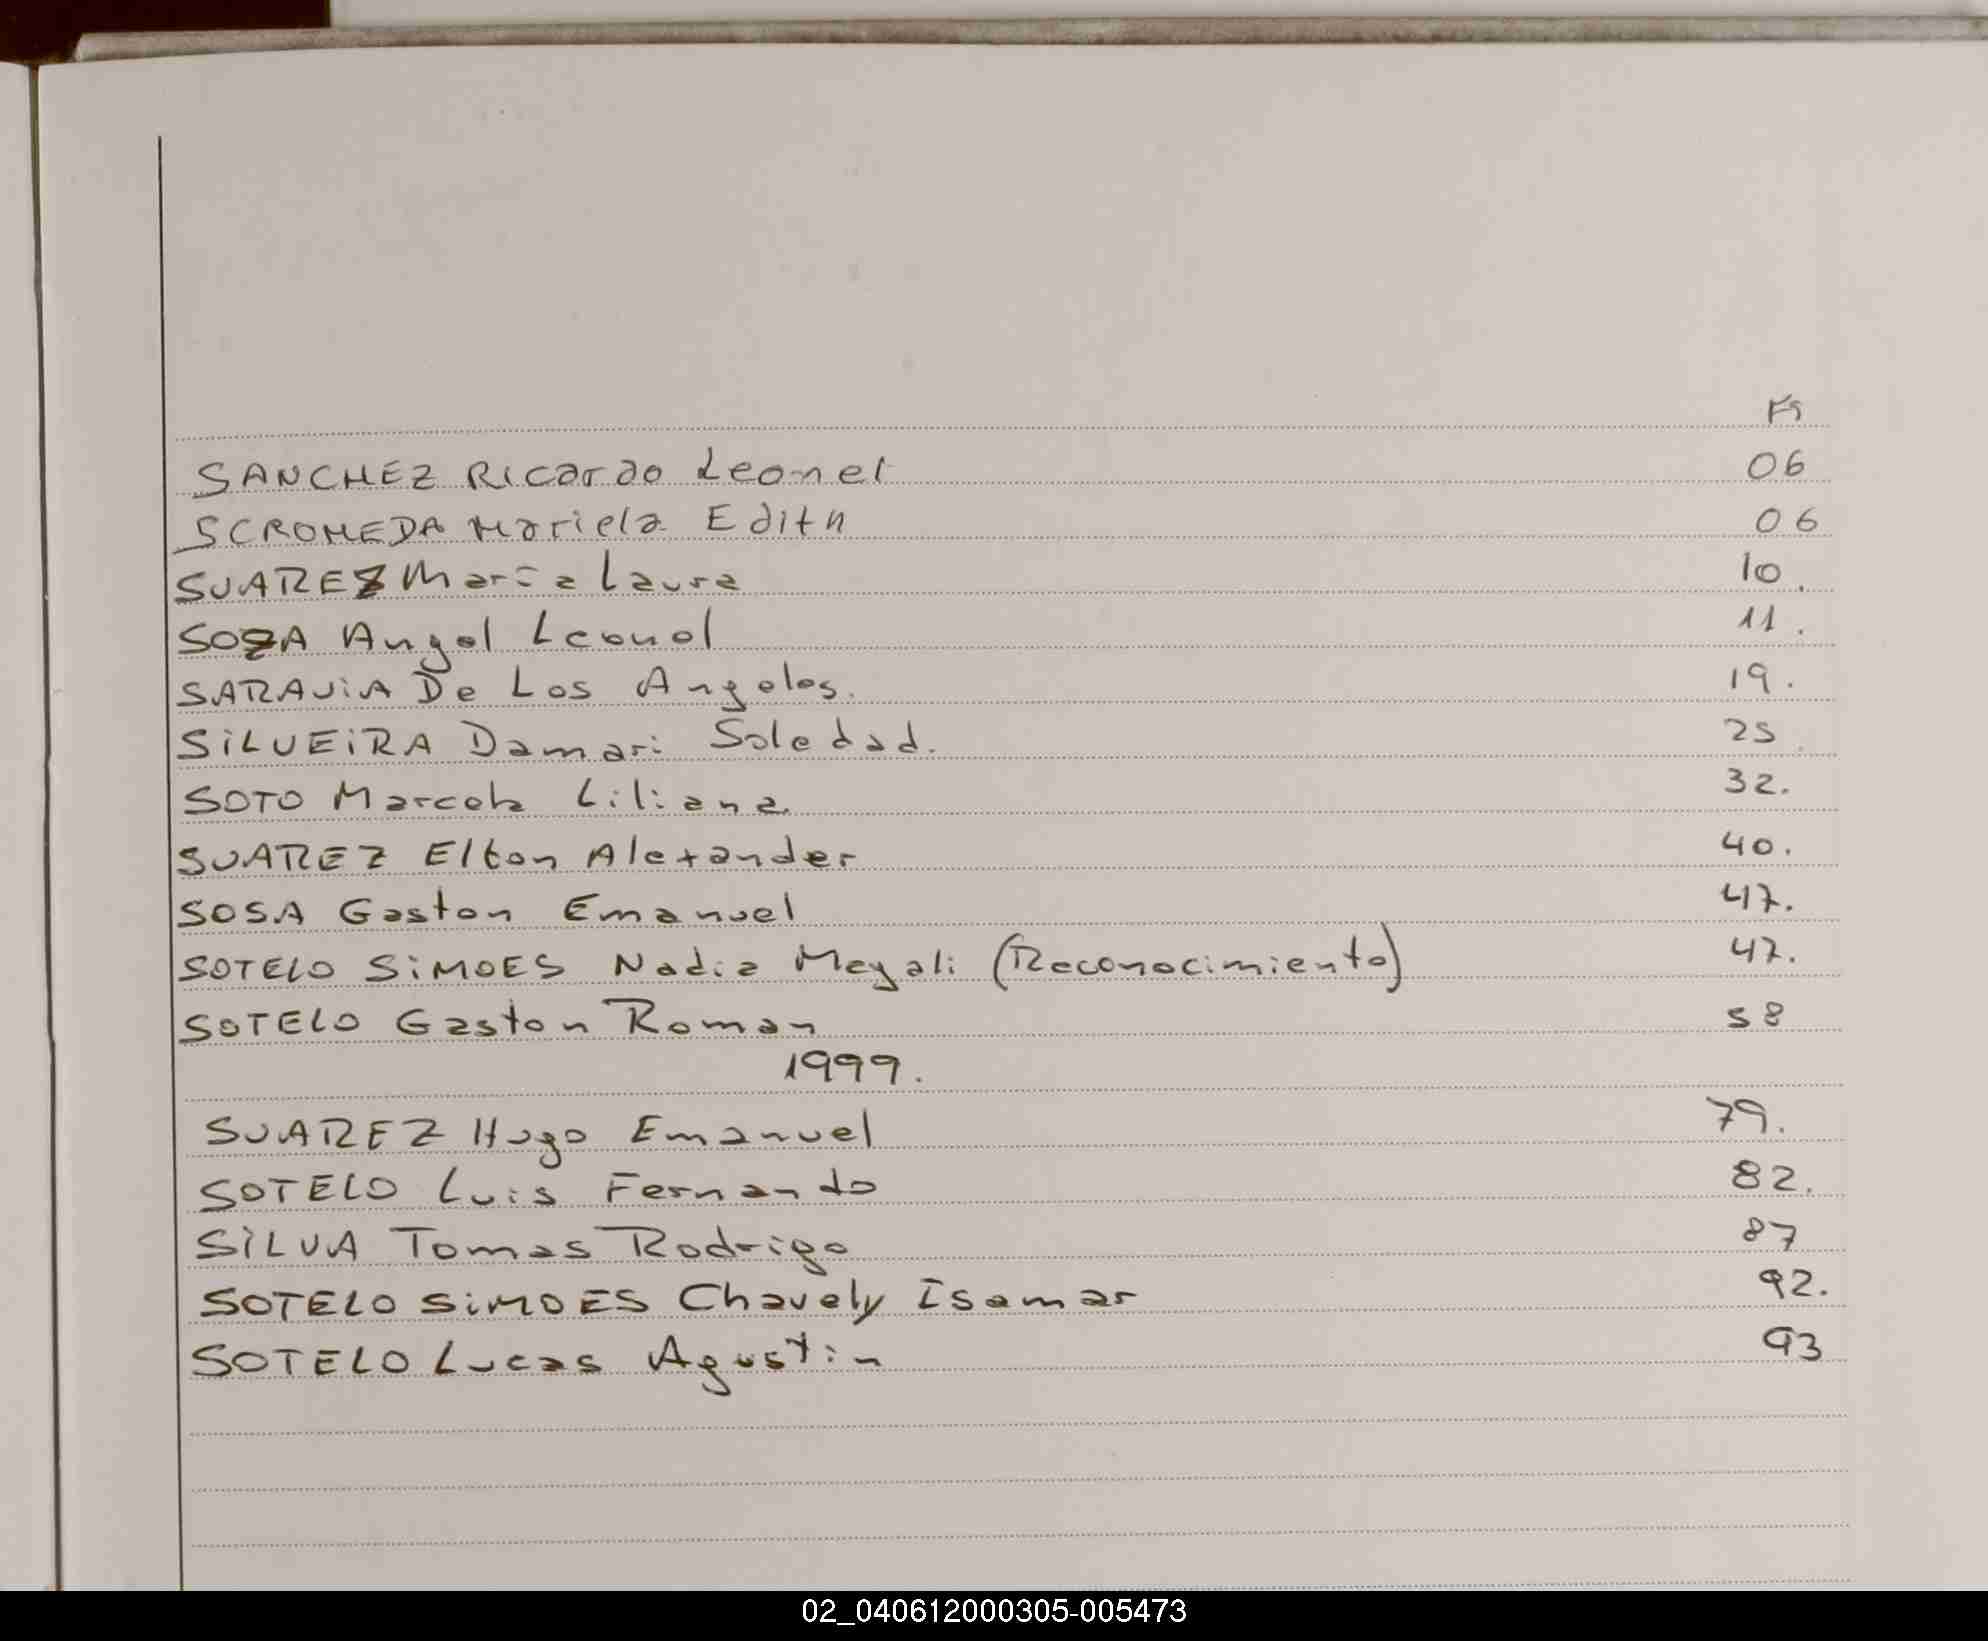 Fs
SANCHEZ Ricardo Leonel 06
SCROMEDA Mariela Edith 06
SUAREZ Maria Laura 10.
SOZA Angel Leonel 11.
SARAVIA De Los Angeles. 19.
SILVEIRA Damari Soledad. 25.
SOTO Marcela Liliana. 32.
SUAREZ Elton Alexander 40.
SOSA Gaston Emanuel 47.
SOTELO SIMOES Nadia Megali (Reconocimiento) 47.
SOTELO Gaston Roman 58
1999.
SUAREZ Hugo Emanuel 79.
SOTELO Luis Fernando 82.
SILVA Tomas Rodrigo 87
SOTELO SIMOES Chavely Isamar 92.
SOTELO Lucas Agustin 93
02_040612000305-005473